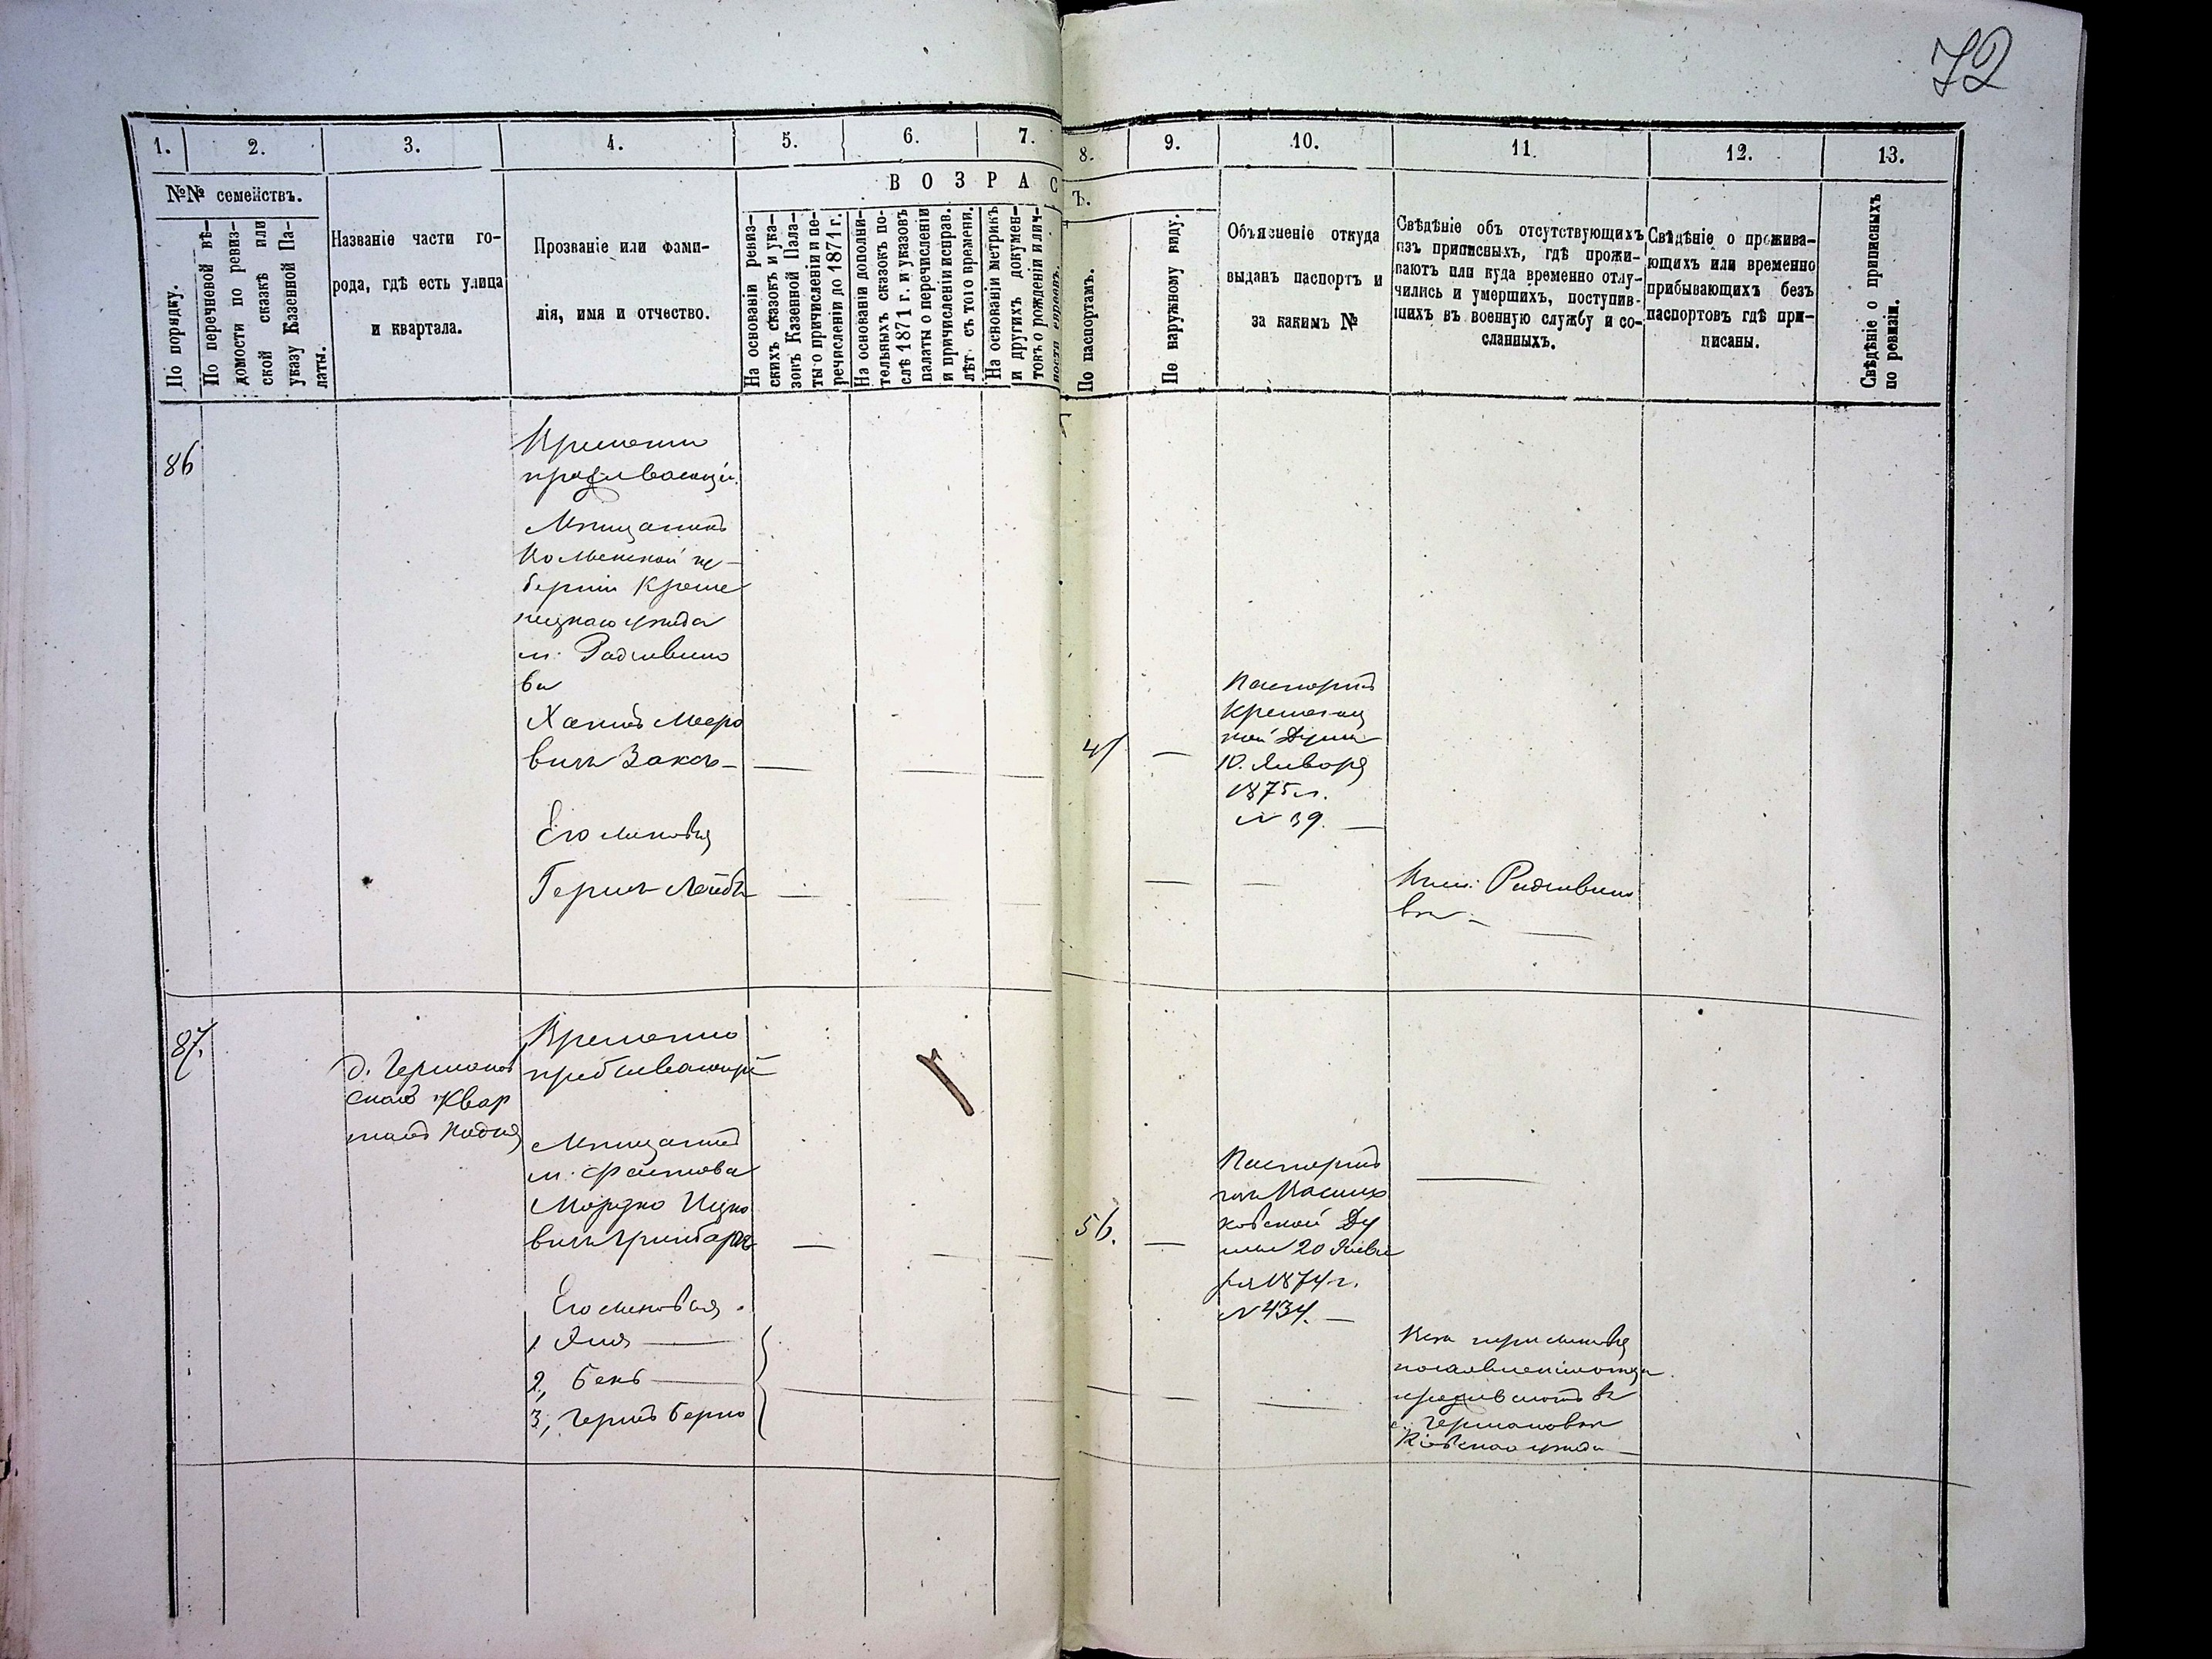 72
1. 2. 3. 4. 5. 6. 7. 8. 9. 10. 11. 12. 13.
№№ семействъ.
По порядку.
По перечневой вѣ-
домости по ревиз-
ской сказкѣ или
указу Казенной Па-
латы.
Названіе части го-
рода, гдѣ есть улица
и квартала.
Прозваніе или фами-
лія, имя и отчество.
ВОЗРАС
Ъ.
На основаніи ревиз-
скихъ сказокъ и ука-
зовъ Казенной Пала-
ты о причисленіи и пе-
речисленіи до 1871 г.
На основаніи дополни-
тельныхъ сказокъ по-
слѣ 1871 г. и указовъ
палаты о перечисленіи
и причисленіи исправ.
лѣт съ того времени.
На основаніи метрикъ
и другихъ докумен-
товъ о рожденіи и лич-
ности евреевъ.
По паспортамъ.
По наружному виду.
Объясненіе откуда
выданъ паспортъ и
за какимъ №
Свѣдѣніе объ отсутствующихъ
изъ приписныхъ, гдѣ прожи-
ваютъ или куда временно отлу-
чились и умершихъ, поступив-
шихъ въ военную службу и со-
сланныхъ.
Свѣдѣніе о прожива-
ющихъ или временно
прибывающихъ безъ
паспортовъ гдѣ при-
писаны.
Свѣдѣніе о приписныхъ
по ревизіи.
86
Временно
проживающій
Мѣщанинъ
Волынской гу-
берніи Креме
нецкаго уѣзда
м. Радзивило
ва
Хаимъ Мееро
вичъ Заксъ —
Его сыновья
Гершъ Лейбъ
Паспортъ
Кременец
кой Думы
10. Января
1875 г.
№ 39. —
Въ м. Радзивило
вѣ —
87.
Временно
пребывающій
Мѣщанинъ
м. Фастова
Мордко Ицко
вичъ
Его сыновья
1
2, Бенъ
3, Гершъ Берко
56.
Паспортъ
изъ Василь
ковской Ду
мы 20 Янва
ря 1874 г.
№ 434. —
Всѣ три сыновья
проживаютъ въ
с. Германовкѣ
Кіевскаго уѣзда —